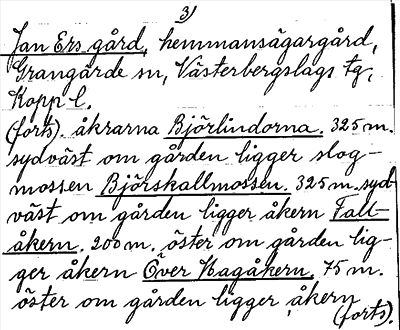 3)
Jan Ers gård, hemmansägargård,
Grangärde sn, Västerbergslags tg,
Kopp l.
(forts). åkrarna Björlindorna. 325 m.
sydväst om gården ligger slog-
mossen Björskallmossen. 325 m. syd-
väst om gården ligger åkern Falt-
åkern. 200 m. öster om gården lig-
ger åkern Över Hagåkern. 75 m.
öster om gården ligger åkern
(forts).